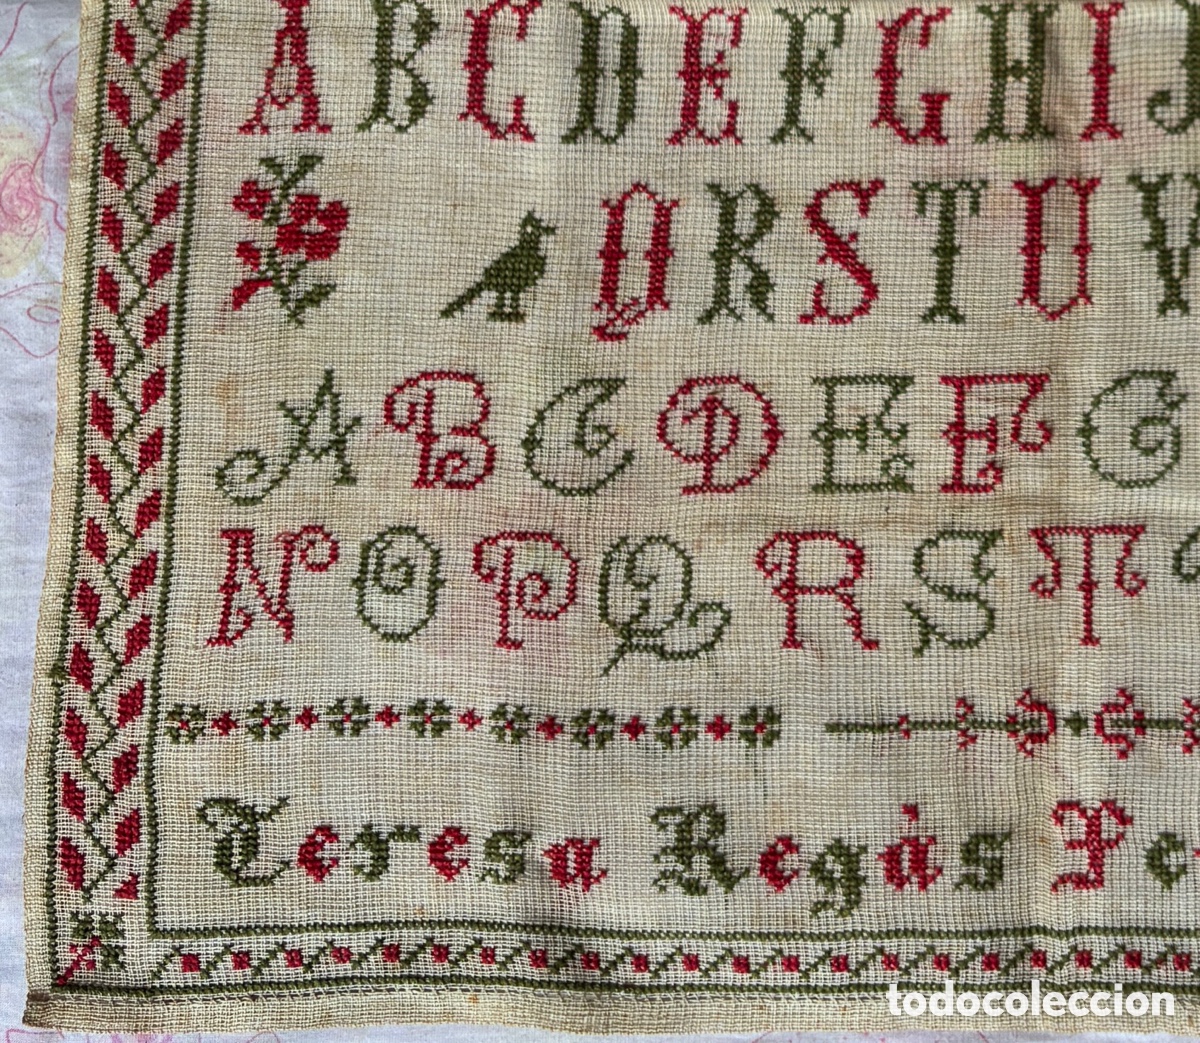 A B C D E F G H I J
Q R S T U V
A B C D E F G
N O P Q R S T
Teresa Regás Pe
todocoleccion